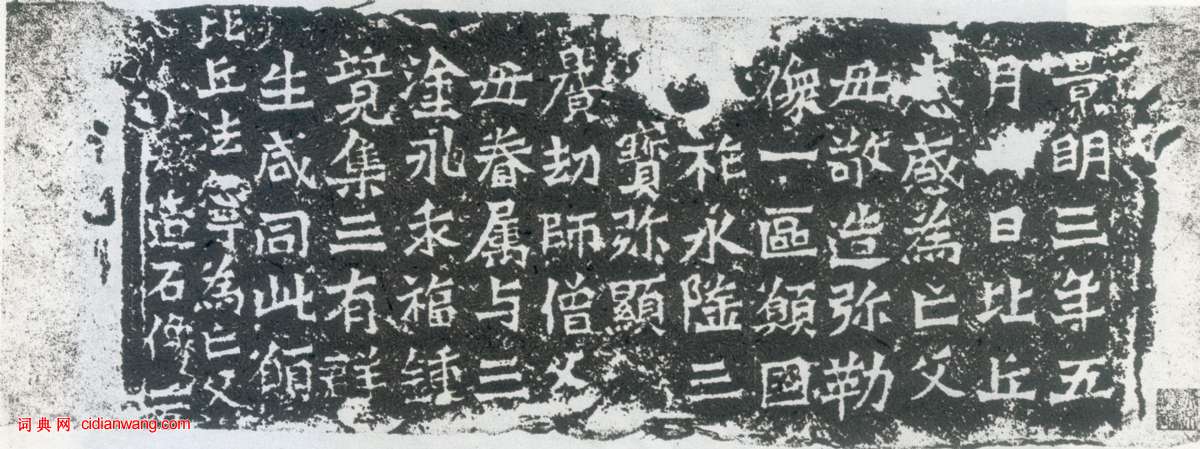 景明三年五
月日比丘
惠感為亡父
毋敬造弥勒
像一區願國
祚永隆三
寶弥顯
曠劫師僧父
毋眷属与三
塗永乖福鍾
竟集三有群
生咸同此願
比丘法寧為亡父
造石像一
词典网 cidianwang.com